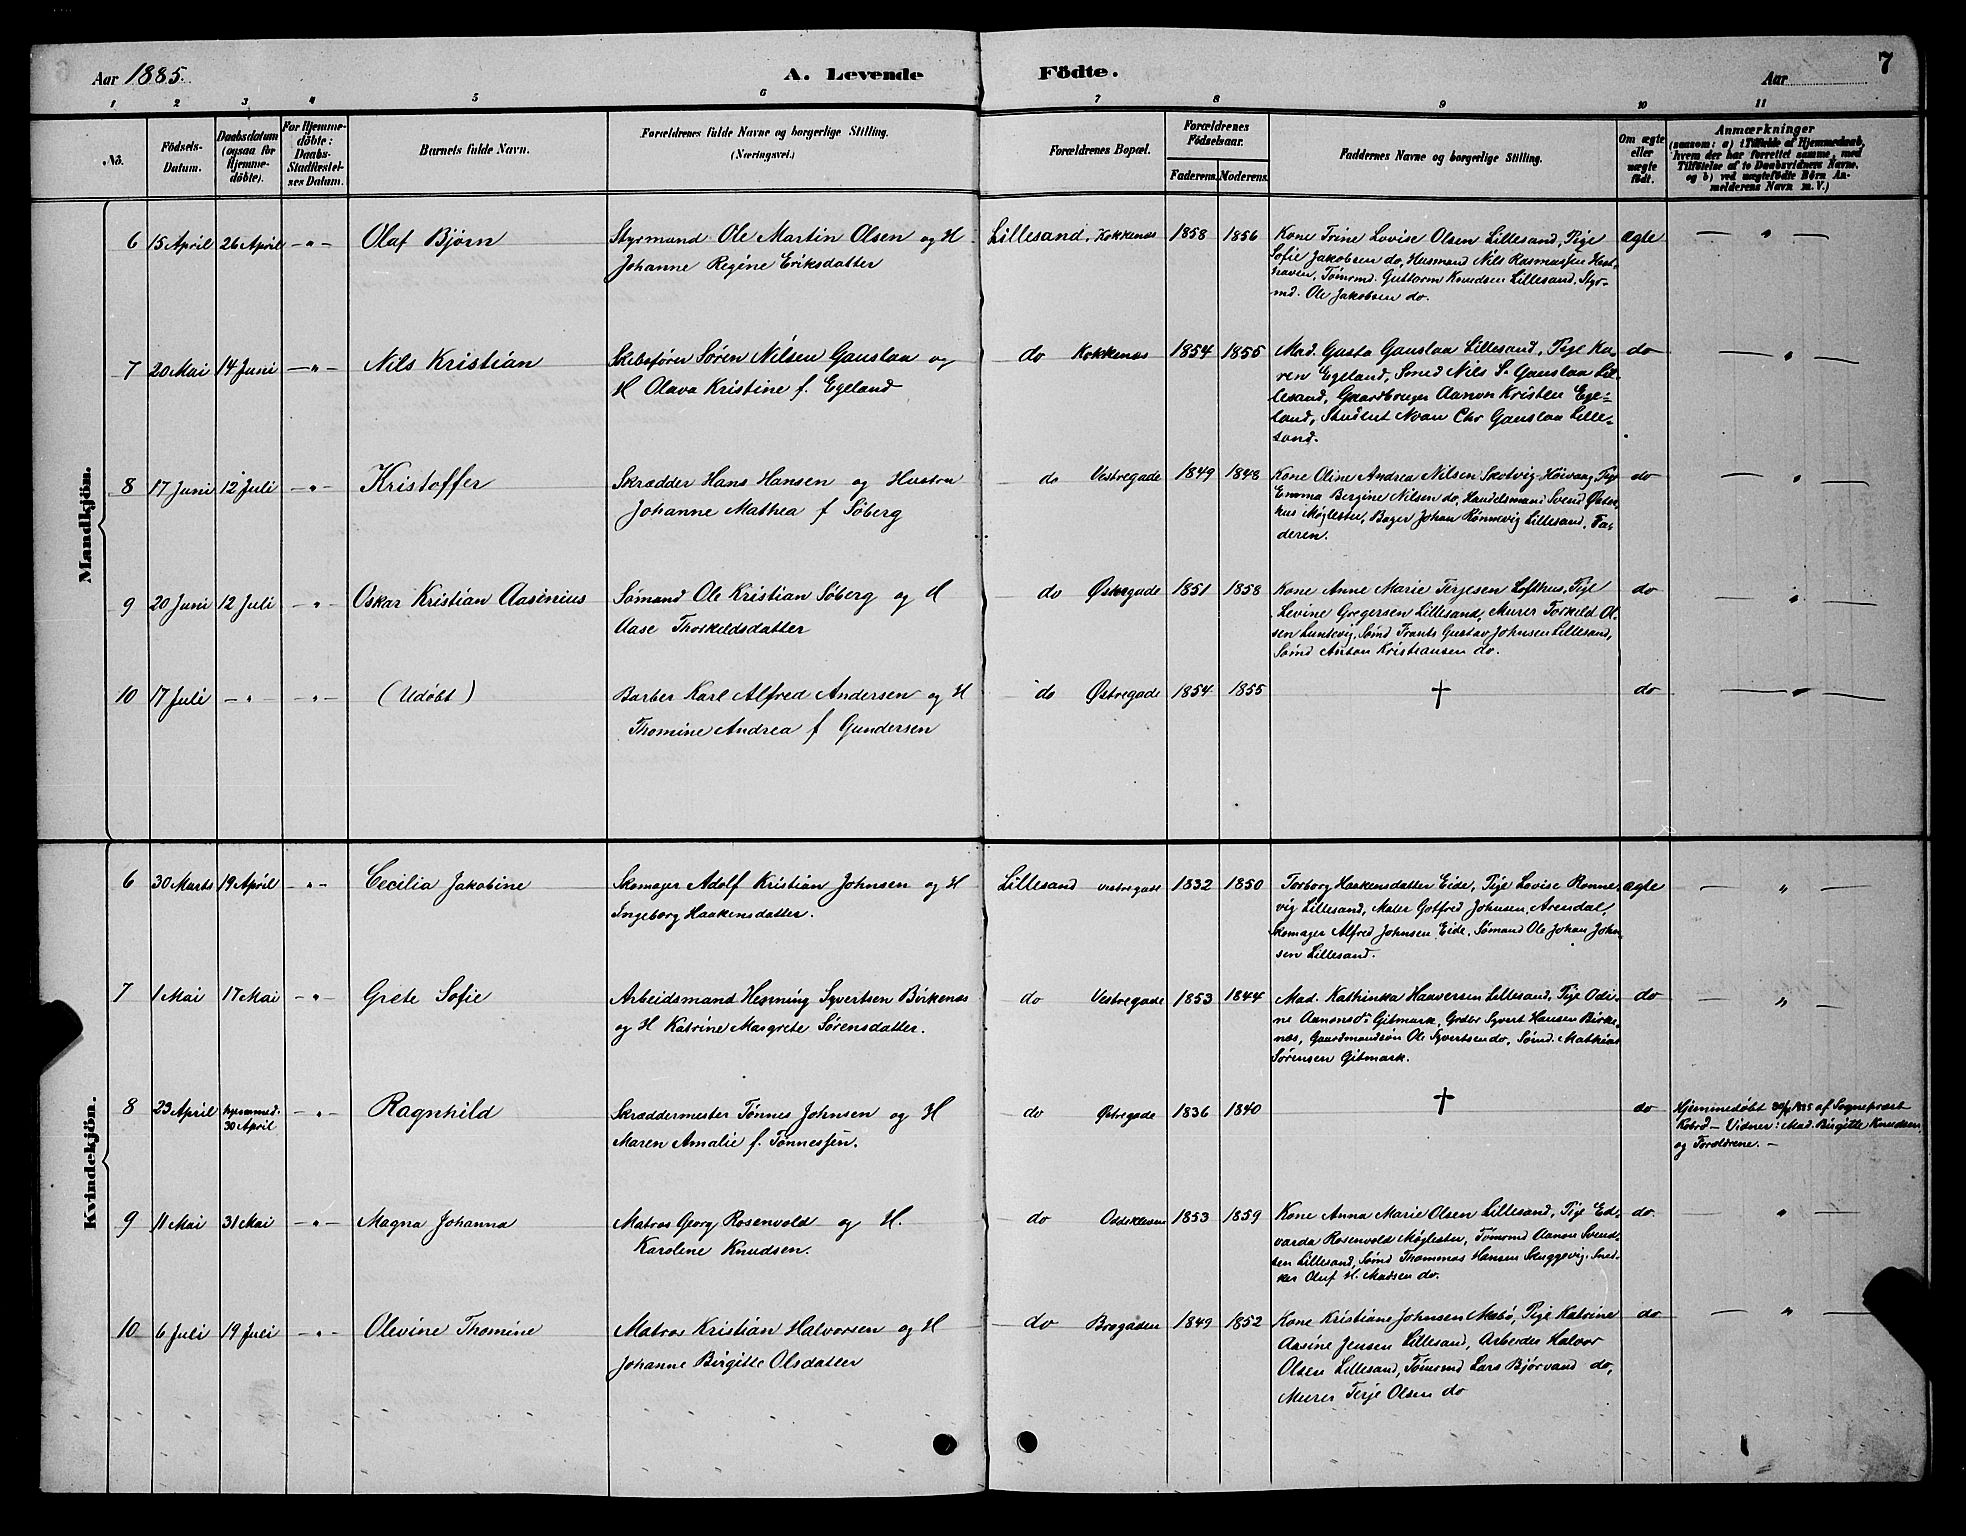 Aar 1885.
A. Levende Födte.
Aar
7
1 2 3 4 5 6 7 8 9 10 11
No.
Födsels-
Datum.
Daabsdatum
(ogsaa for
Hjemme-
döbte).
For Hjemme-
döbte:
Daabs-
Stadfæstel-
ses Datum.
Barnets fulde Navn.
Forældrenes fulde Navne og borgerlige Stilling.
(Næringsvei.)
Forældrenes Bopæl.
Forældrenes
Födselsaar.
Faderens. Moderens.
Faddernes Navne og borgerlige Stilling.
Om ægte
eller
uægte
födt.
Anmærkninger
(saasom: a) i Tilfælde af Hjemmedaab,
hvem der har forrettet samme, med
Tilföielse af to Daabsvidners Navne,
og b) ved uægtefödte Börn An-
melderens Navn m.V.)
Mandkjön.
6 15 April 26 April - " - Olaf Bjørn
Styrmand Ole Martin Olsen og H
Johanne Regine Eriksdatter
Lillesand, Kokkenes 1858 1856
Kone Trine Lovise Olsen Lillesand, Pige
Sofie Jakobsen do, Husmand Nils Rasmussen Hest-
haven, Tømrmd. Guttorm Knudsen Lillesand, Styr-
md. Ole Jakobsen do.
ægte — " —
7 20 Mai 14 Juni - " - Nils Kristian
Skibsfører Søren Nilsen Gauslaa og
H Olava Kristine f. Egeland
do Kokkenes 1854 1855
Mad. Gusta Gauslaa Lillesand, Pige Ka-
ren Egeland, Smed Nils S. Gauslaa Lil-
lesand, Gaardbruger Aanon Kristen Ege-
land, Student Chr Gauslaa Lille-
sand.
do — " —
8 17 Juni 12 Juli - " - Kristoffer
Skrædder Hans Hansen og Hustru
Johanne Mathea f Søberg
do Vestregade 1849 1848
Kone Oline Andrea Nilsen Skotvig Høivaag, Pige
Emma Bergine Nilsen do, Handelsmand Svend Øster-
hus Møglestu, Bager Johan Rønnevig Lillesand, Fa-
deren.
do — " —
9 20 Juni 12 Juli - " Oskar Kristian Aasenius
Sømand Ole Kristian Søberg og H
Aase Thorkildsdatter
do Østregade 1851 1858
Kone Anne Marie Terjesen Lofthus, Pige
Levine Gregersen Lillesand, Murer Torkild Ol-
sen Lundevig, Sømd Frants Gustav Johnsen Lillesand,
Sømd Anton Kristiansen do.
do — " —
10 17 Juli - " - " - (Udøbt)
Barber Karl Alfred Andersen og H
Thomine Andrea f Gundersen
do Østregade 1854 1855
†
do — " —
Kvindekjön.
6 30 Marts 19 April - " - Cecilia Jakobine
Skomager Adolf Kristian Johnsen og H
Ingeborg Haakensdatter.
Lillesand Vestregade 1832 1850
Torborg Haakensdatter Eide, Pige Lovise Rønne-
vig Lillesand, Maler Gotfred Johnsen, Arendal,
Skomager Alfred Johnsen Eide, Sømand Ole Johan John-
sen Lillesand.
ægte — " —
7 1 Mai 17 Mai - " - Grete Sofie
Arbeidsmand Henning Syvertsen Birkenes
og H Katrine Margrete Sørensdatter.
do Vestregade 1853 1844
Mad. Kathinka Haaversen Lillesand, Pige Odi-
ne Aanonsdr Gitmark, Grdbr Syvert Hansen Birke-
nes, Gaardmandsøn Ole Syvertsen do, Sømd. Mathias
Sørensen Gitmark.
do — " —
8 23 April hjemmed.
30 April
- " - Ragnhild
Skræddermester Tønnes Johnsen og H
Maren Amalie f. Tønnessen.
do Østregade 1836 1840
†
do
Hjemmedøbt 30/4 1885 af Sogneprest
Kobro - Vidner: Mad. Birgitte Knudsen
og Forældrene. -
9 11 Mai 31 Mai - " - Magna Johanna
Matros Georg Rosenvold og H.
Karoline Knudsen.
do Oddekleven 1853 1859
Kone Anna Marie Olsen Lillesand, Pige Ed-
varda Rosenvold Møglestu, Tømrmd Aanon Svend-
sen Lillesand, Sømd Thommas Hansen Skuggevig, Sned-
ker Oluf H. Madsen do.
do. — " —
10 6 Juli 19 Juli - " - Olevine Thomine
Matros Kristian Halvorsen og H
Johanne Birgitte Olsdatter
do Brogaden 1849 1852
Kone Kristiane Johnsen Mæbø, Pige Katrine
Aasine Jensen Lillesand, Arbeider Halvor
Olsen Lillesand, Tømrmd Lars Bjørvand do,
Murer Terje Olsen do
do — " —